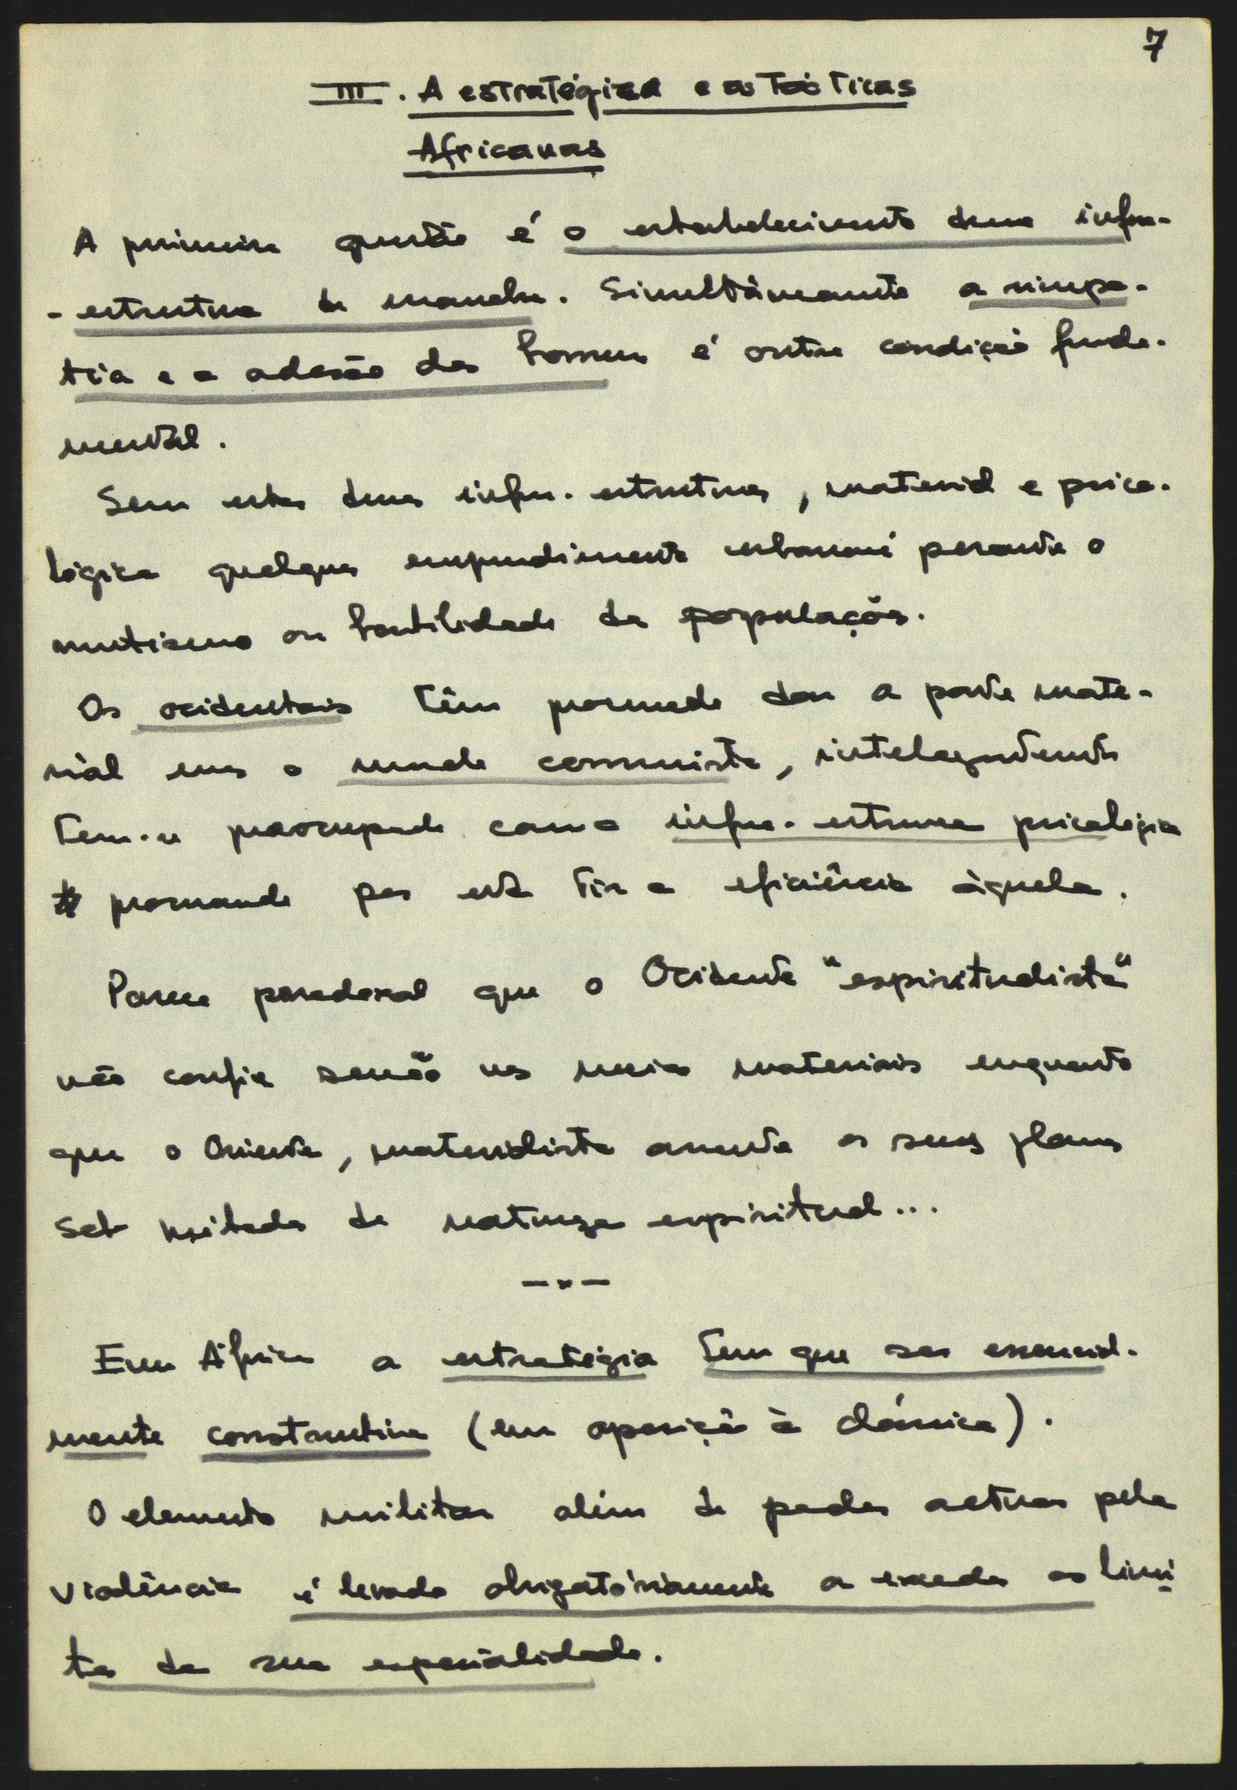 7
III. A estratégica e as Tácticas
Africanas
A primeira questão é o estabelecimento duma infra-
-estrutura de manobra. Simultâneamente a simpa-
tia e a adesão dos homens é outra condição funda-
mental.
Sem estas duas infra-estruturas, material e psico-
lógica qualquer empreendimento esbarrará perante o
mutismo ou hostilidade das populações.
Os ocidentais têm procurado dar a parte mate-
rial mas o mundo comunista, inteligentemente
tem-se preocupado com a infra-estrutura psicológica
procurando por esta tirar eficiência àquela.
Parece paradoxal que o Ocidente "espiritualista"
não confia senão nos meios materiais enquanto
que o Oriente, materialista assenta os seus planos
de natureza espiritual...
-x-
Em África a estratégia tem que ser essencial-
mente construtiva (em oposição à clássica).
O elemento militar além de poder actuar pela
violência é levado obrigatóriamente a exceder os limi
tes da sua especialidade.